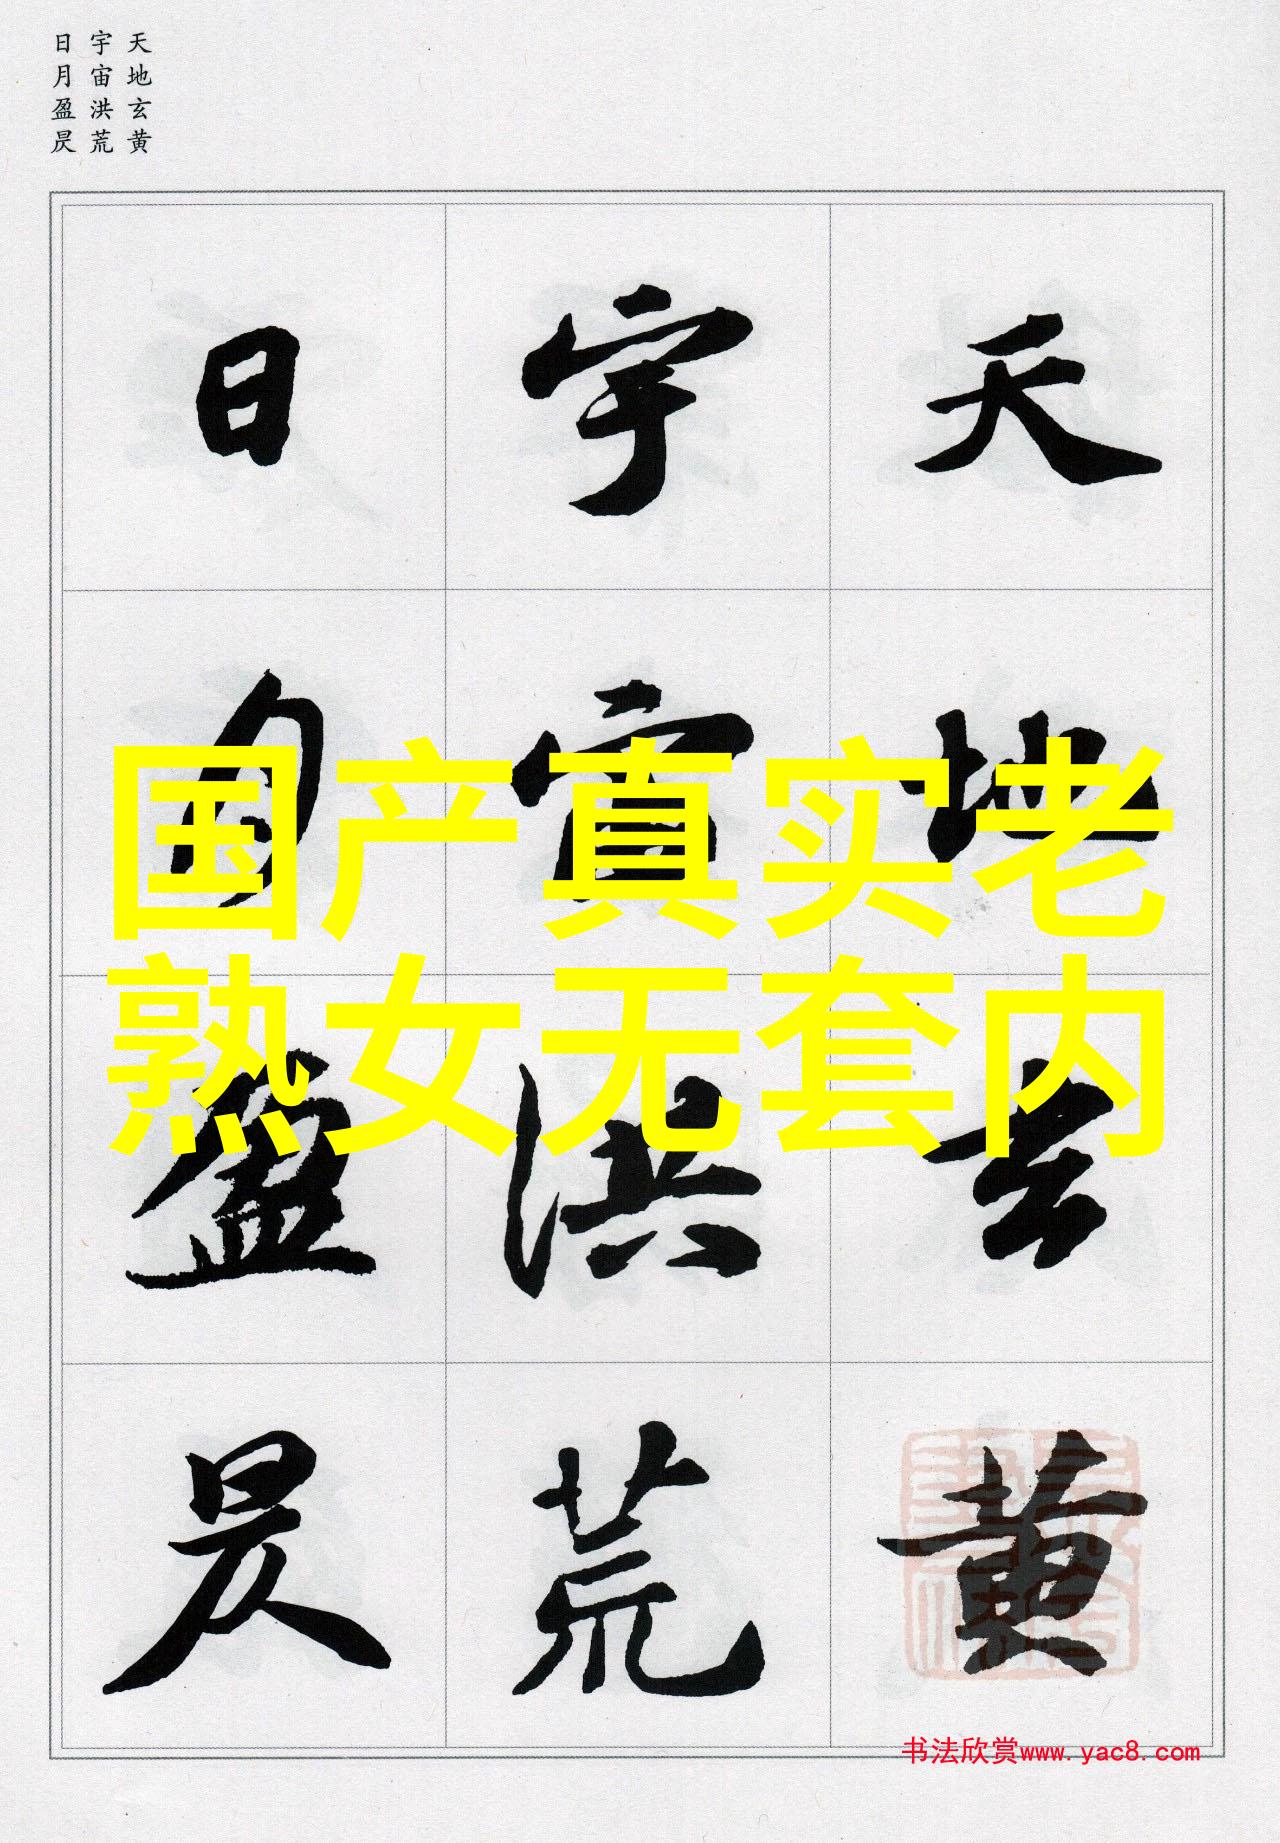 天地玄黄
宇宙洪荒
日月盈昃
天地玄黄
宇宙洪荒
日月盈昃
国产真实老
熟女无套内
书法欣赏www.yac8.com